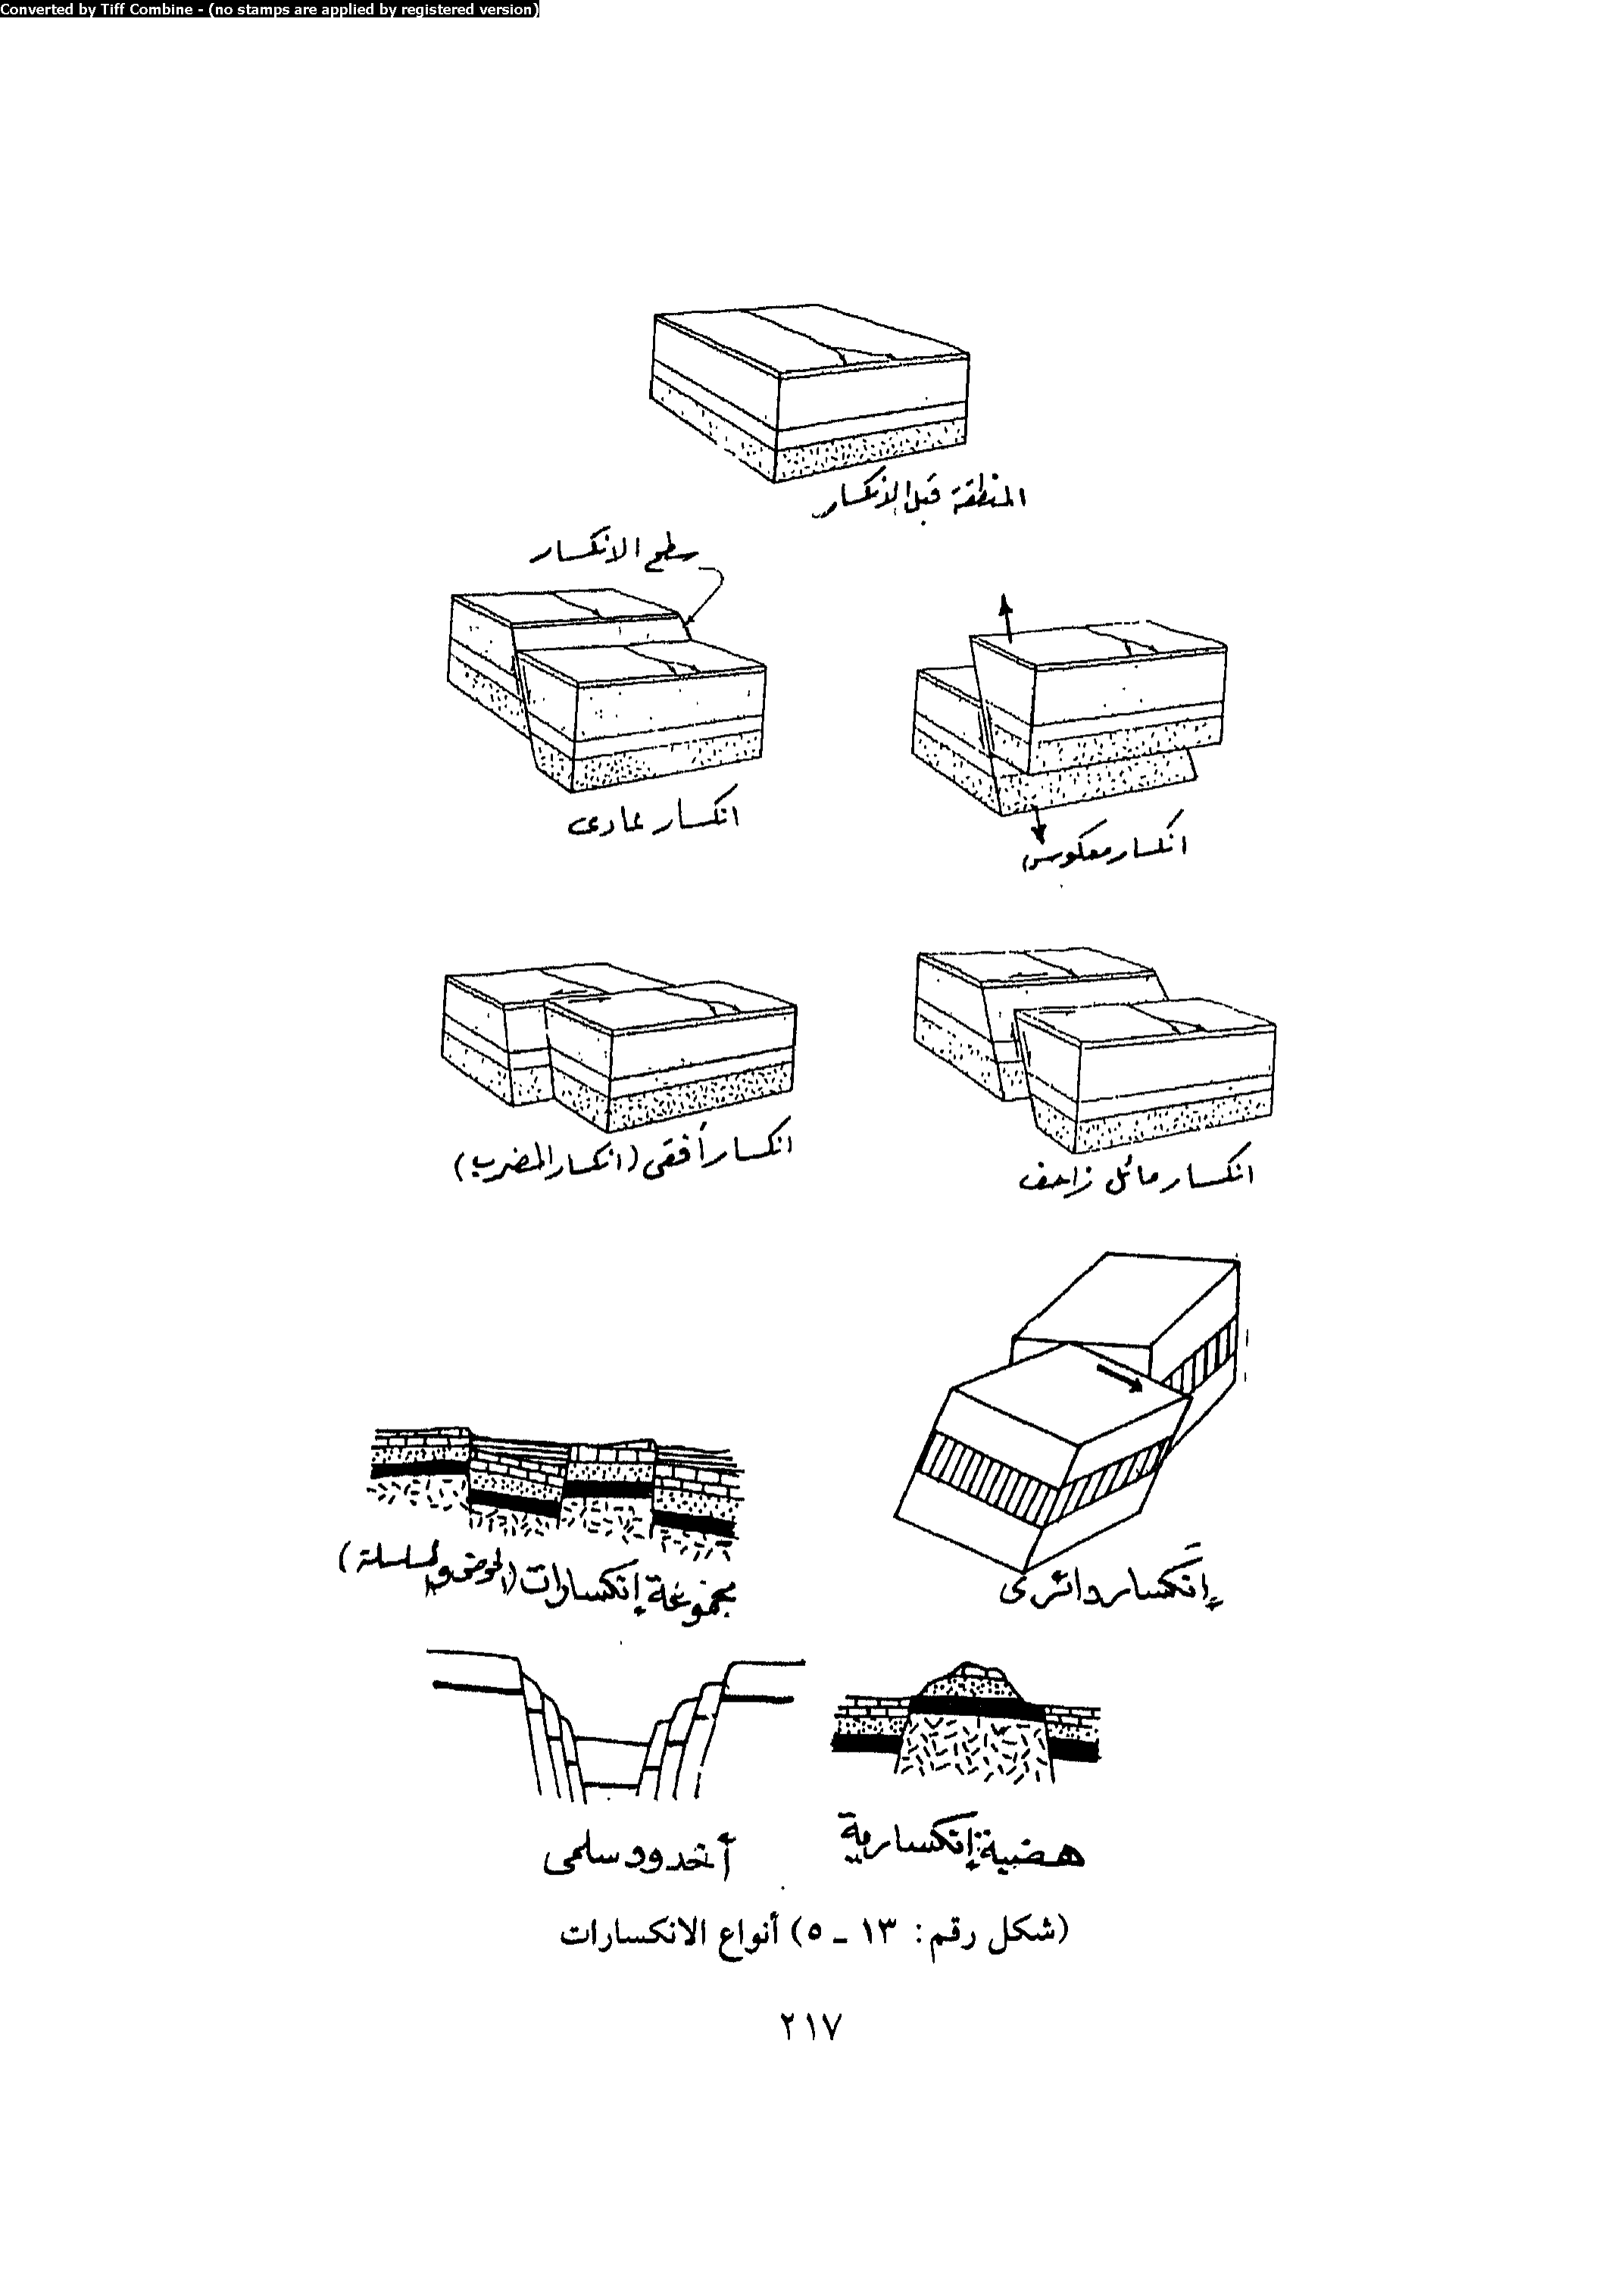 Converted by Tiff Combine - (no stamps are applied by registered version)
المنطقة قبل الانكسار
سطح الانكسار
انكسار عادى
انكسار معكوس
انكسار أفقى (انكسار المضرب)
انكسار مائل زاحف
إنكسار دائرى
مجموعة إنكسارات (الحوض والسلسلة)
هضبة إنكسارية
أخدود سلمى
(شكل رقم: ١٣ - ٥) أنواع الانكسارات
٢١٧